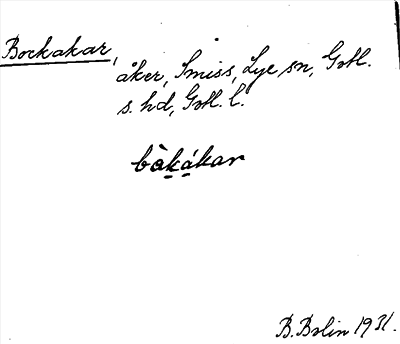 Bockakar,
åker, Smiss, Lye sn, Gotl.
s. hd, Gotl. l.
bàk̠á̠kar
B. Bolin 1931.